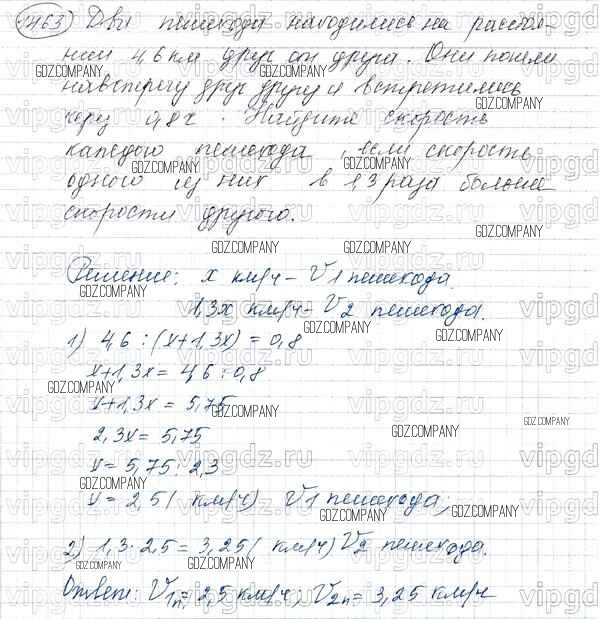 1463) Два пешехода находились на расстоя-
нии 4,6 км друг от друга. Они пошли
навстречу друг другу и встретились
через 0,8 ч. Найдите скорость
каждого пешехода, если скорость
одного из них в 1,3 раза больше
скорости другого.
Решение: x км/ч - V1 пешехода.
1,3x км/ч - V2 пешехода.
1) 4,6 : (x+1,3x) = 0,8
x+1,3x = 4,6 : 0,8
x+1,3x = 5,75
2,3x = 5,75
x = 5,75 : 2,3
x = 2,5 ( км/ч) V1 пешехода;
2) 1,3 · 2,5 = 3,25 ( км/ч) V2 пешехода.
Ответ: V1п = 2,5 км/ч; V2п = 3,25 км/ч